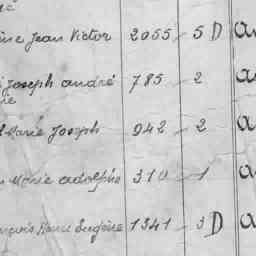 Jean Victor 2055 5 D
Joseph andré 785 2
Marie Joseph 942 2
Marie adolphe 310 1
Marie Eugène 1341 3 D